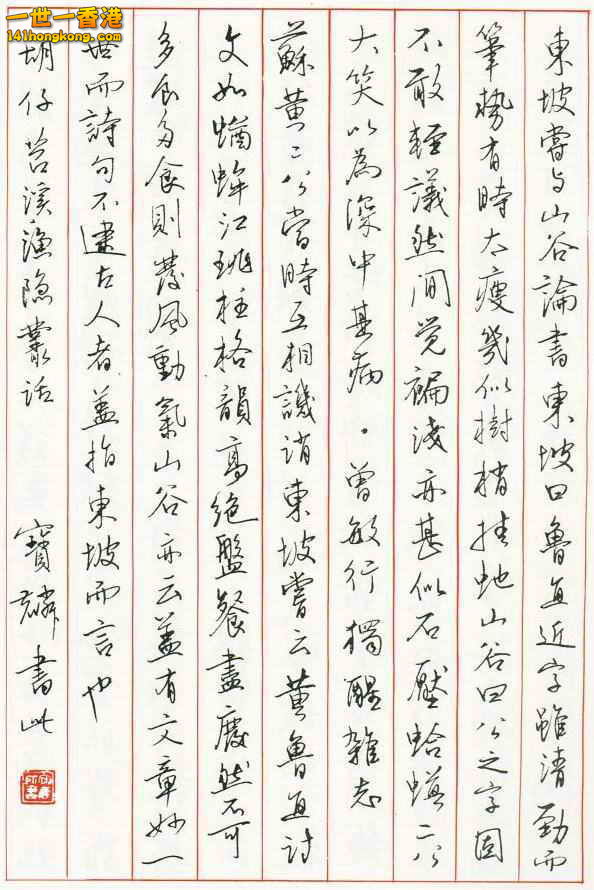 一世一香港
141hongkong.com
東坡嘗与山谷論書東坡曰魯直近字雖清勁而
筆勢有時太瘦幾似樹梢挂虵山谷曰公之字固
不敢輕議然間觉褊淺亦甚似石壓蛤蟆二公
大笑以為深中其病・曾敏行獨醒雜志
蘇黃二公當時互相譏誚東坡嘗云黃魯直詩
文如蝤蛑江珧柱格韻高絕盤餐盡廢然不可
多食多食則發風動氣山谷亦云盖有文章妙一
世而詩句不逮古人者盖指東坡而言也
胡仔苕溪漁隐叢話 寶麟書此